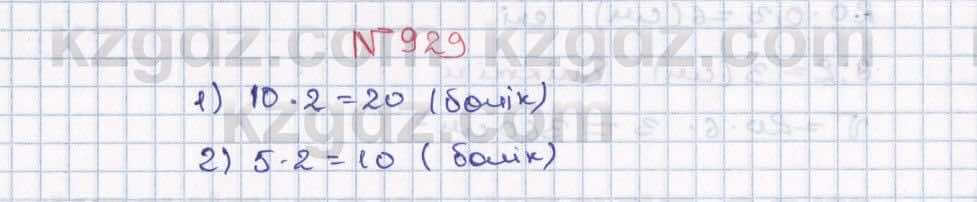 №929
1) 10·2=20 (бөлік)
2) 5·2=10 (бөлік)
kzgdz.com kzgdz.com
kzgdz.com